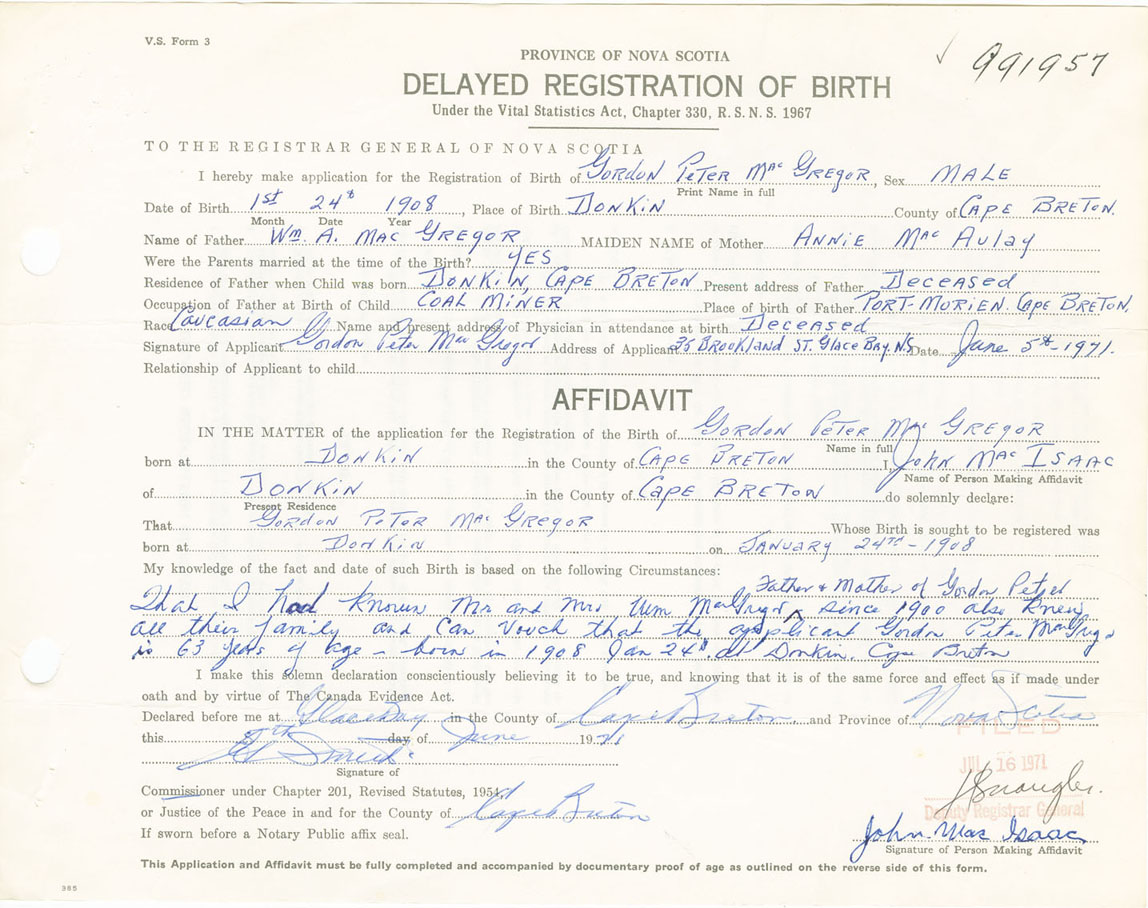 V.S. Form 3
991957
PROVINCE OF NOVA SCOTIA
DELAYED REGISTRATION OF BIRTH
Under the Vital Statistics Act, Chapter 330, R. S. N. S. 1967
TO THE REGISTRAR GENERAL OF NOVA SCOTIA
I hereby make application for the Registration of Birth of GORDON PETER MacGREGOR, Sex MALE
Print Name in full
Date of Birth 1st 24th 1908, Place of Birth DONKIN County of CAPE BRETON.
Month Date Year
Name of Father Wm. A. MacGREGOR MAIDEN NAME of Mother ANNIE MacAulay
Were the Parents married at the time of the Birth? YES
Residence of Father when Child was born DONKIN, CAPE BRETON Present address of Father Deceased
Occupation of Father at Birth of Child COAL MINER Place of birth of Father PORT-MORIEN. CAPE BRETON.
Race Caucasian Name and present address of Physician in attendance at birth Deceased
Signature of Applicant Gordon Peter MacGregor Address of Applicant 36 BROOKLAND ST. Glace Bay. N.S Date June 5th - 1971.
Relationship of Applicant to child
AFFIDAVIT
IN THE MATTER of the application for the Registration of the Birth of GORDON PETER MacGREGOR
Name in full
born at DONKIN in the County of CAPE BRETON I, JOHN MacISAAC
Name of Person Making Affidavit
of DONKIN in the County of CAPE BRETON do solemnly declare:
Present Residence
That GORDON PETER MacGREGOR Whose Birth is sought to be registered was
born at DONKIN on JANUARY 24TH - 1908
My knowledge of the fact and date of such Birth is based on the following Circumstances:
Father & Mother of Gordon Peter
That I had known Mr and Mrs Wm MacGregor ^ since 1900 also knew
all their family and can vouch that the applicant Gordon Peter MacGregor
is 63 years of age - born in 1908 Jan 24th. at Donkin. Cape Breton
I make this solemn declaration conscientiously believing it to be true, and knowing that it is of the same force and effect as if made under
oath and by virtue of The Canada Evidence Act.
Declared before me at Glace Bay in the County of Cape Breton and Province of Nova Scotia
this day of June 1971
Signature of
FILED
JUL 16 1971
Deputy Registrar General
Commissioner under Chapter 201, Revised Statutes, 1954,
or Justice of the Peace in and for the County of Cape Breton
If sworn before a Notary Public affix seal.
John Mac Isaac
Signature of Person Making Affidavit
This Application and Affidavit must be fully completed and accompanied by documentary proof of age as outlined on the reverse side of this form.
385